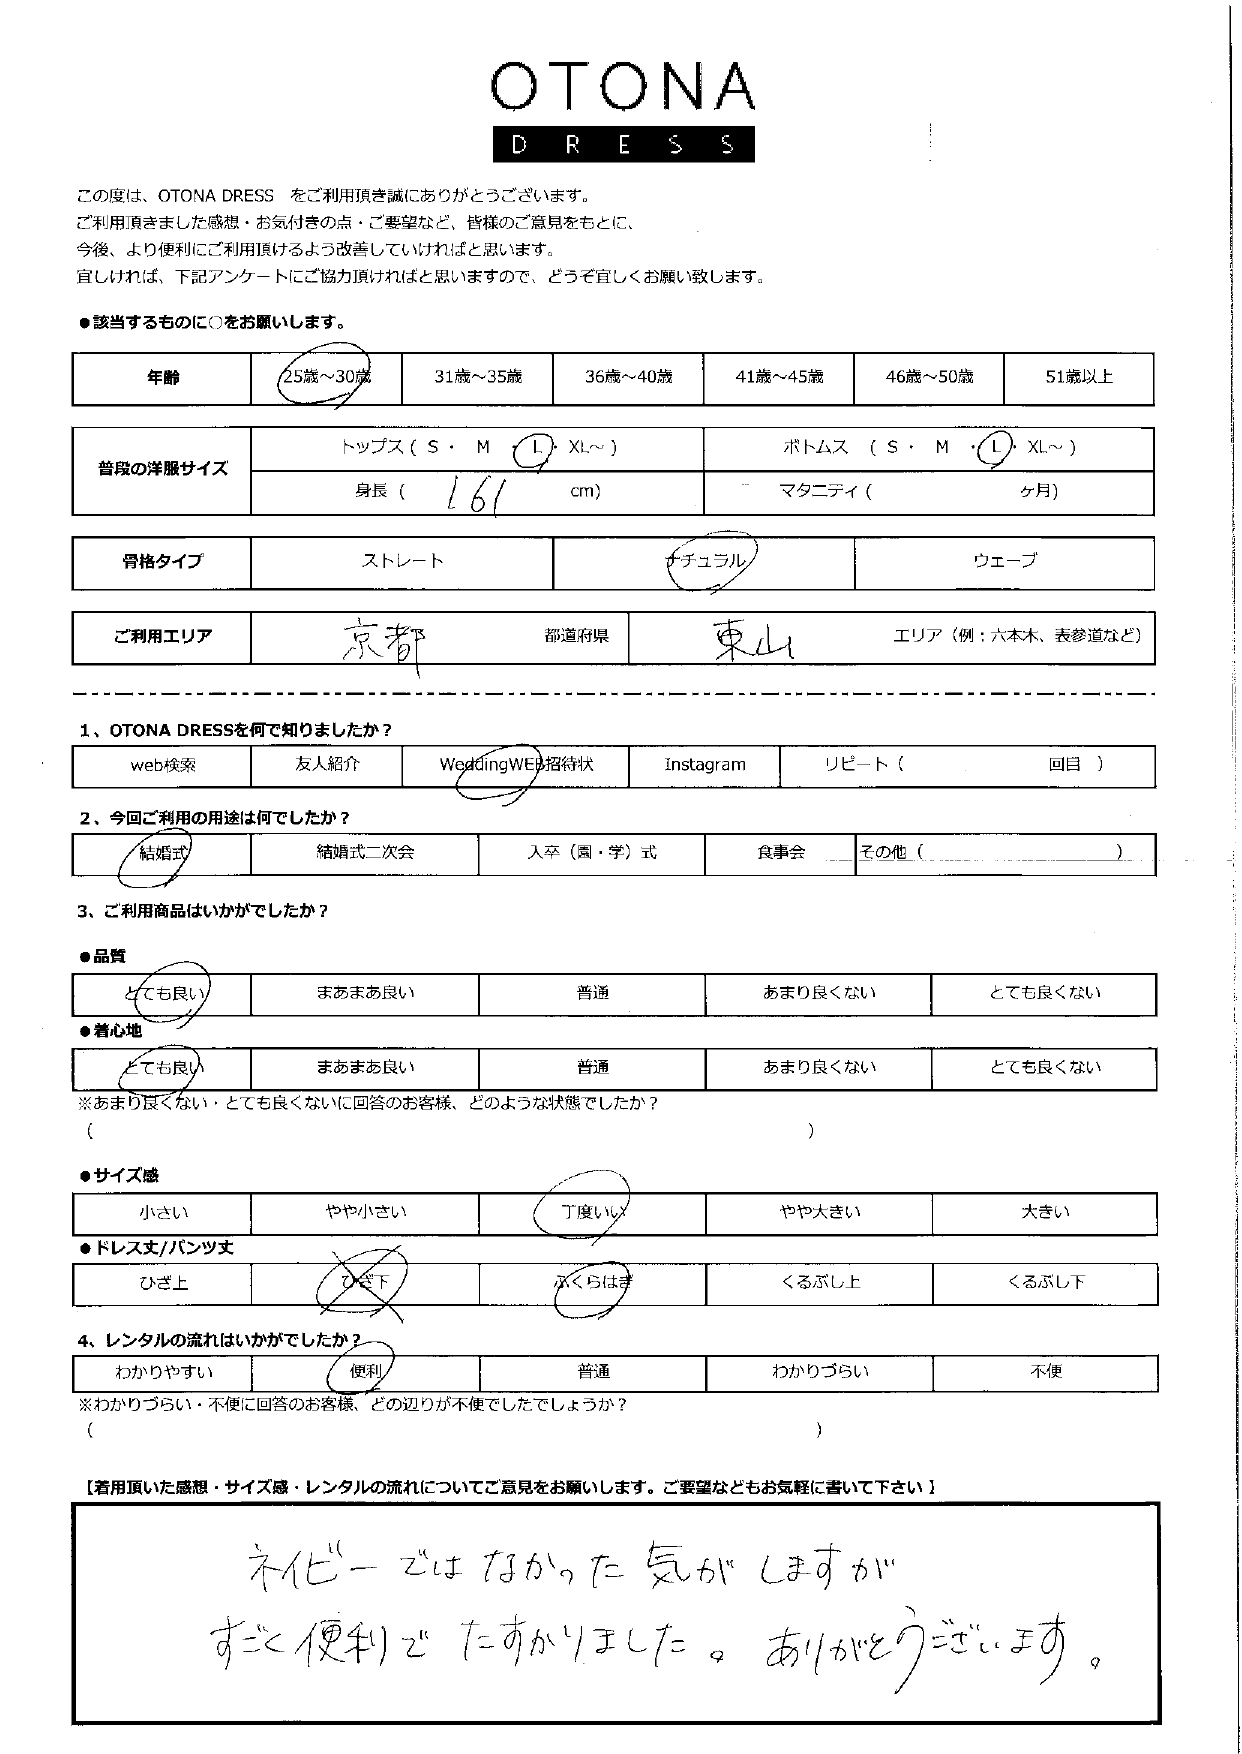 OTONA
DRESS
この度は、OTONA DRESS をご利用頂き誠にありがとうございます。
ご利用頂きました感想・お気付きの点・ご要望など、皆様のご意見をもとに、
今後、より便利にご利用頂けるよう改善していければと思います。
宜しければ、下記アンケートにご協力頂ければと思いますので、どうぞ宜しくお願い致します。
●該当するものに○をお願いします。
年齢 25歳～30歳 31歳～35歳 36歳～40歳 41歳～45歳 46歳～50歳 51歳以上
普段の洋服サイズ
トップス ( S ・ M ・ L ・ XL～ ) ボトムス ( S ・ M ・ L ・ XL～ )
身長 ( 161 cm) マタニティ ( ヶ月)
骨格タイプ ストレート ナチュラル ウェーブ
ご利用エリア 京都 都道府県 東山 エリア（例：六本木、表参道など）
1、OTONA DRESSを何で知りましたか？
web検索 友人紹介 WeddingWEB招待状 Instagram リピート（ 回目 ）
2、今回ご利用の用途は何でしたか？
結婚式 結婚式二次会 入卒（園・学）式 食事会 その他（ ）
3、ご利用商品はいかがでしたか？
●品質
とても良い まあまあ良い 普通 あまり良くない とても良くない
●着心地
とても良い まあまあ良い 普通 あまり良くない とても良くない
※あまり良くない・とても良くないに回答のお客様、どのような状態でしたか？
( )
●サイズ感
小さい やや小さい 丁度いい やや大きい 大きい
●ドレス丈/パンツ丈
ひざ上 ひざ下 ふくらはぎ くるぶし上 くるぶし下
4、レンタルの流れはいかがでしたか？
わかりやすい 便利 普通 わかりづらい 不便
※わかりづらい・不便に回答のお客様、どの辺りが不便でしたでしょうか？
( )
【着用頂いた感想・サイズ感・レンタルの流れについてご意見をお願いします。ご要望などもお気軽に書いて下さい】
ネイビーではなかった気がしますが
すごく便利でたすかりました。ありがとうございます。